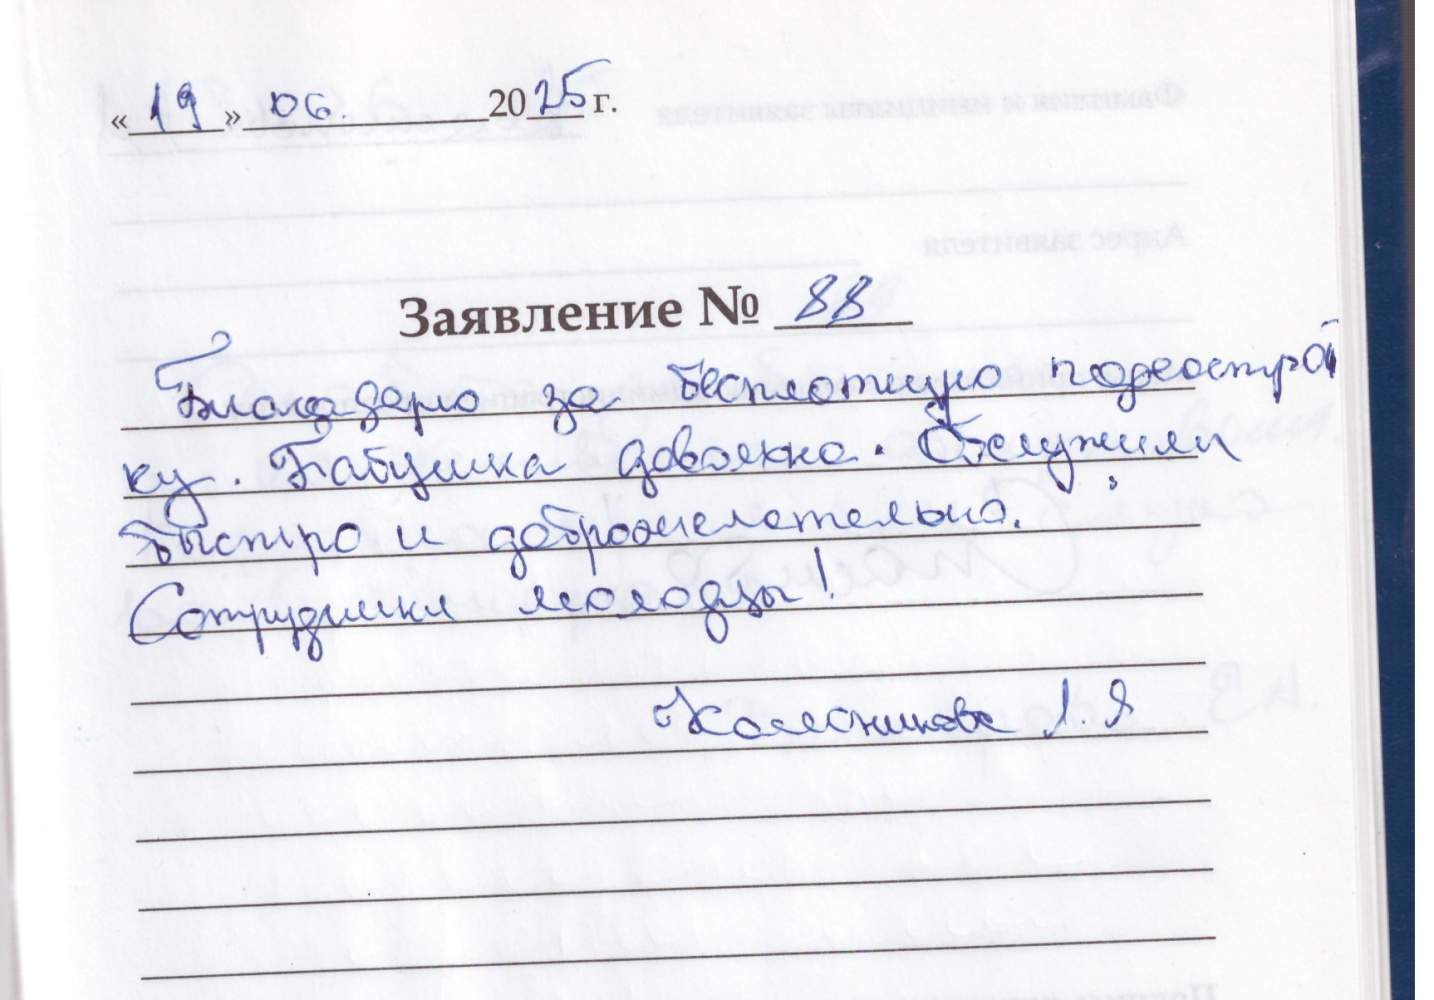 « 19 » 06. 2025 г.
Заявление № 88
Благодарю за бесплатную
ку. Бабушка довольна. Обслужили
быстро и доброжелательно.
Сотрудники молодцы!
Колесникова Л. Я